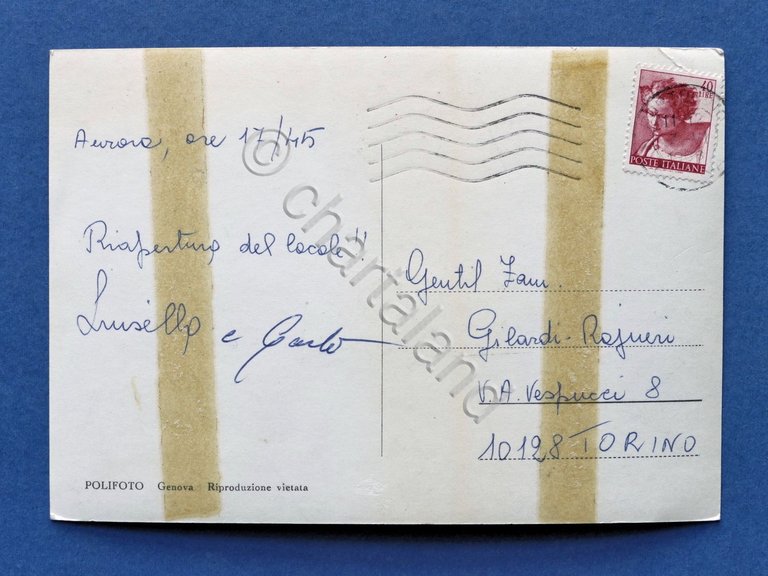 Aurora, ore 17/45
Riapertura del locale!!
Luisella e Carlo
POLIFOTO Genova Riproduzione vietata
40
LIRE
POSTE ITALIANE
Gentil Fam.
Gilardi-Rajneri
V. A. Vespucci 8
10128 TORINO
© chartaland